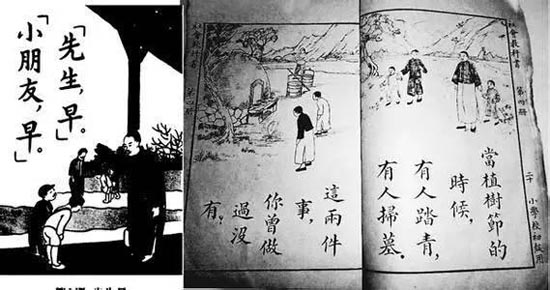 「先生，早。」
「小朋友，早。」
社會教科書
第四册
二十
小學校初級用
當植樹節的
時候，
有人踏青，
有人掃墓。
這兩件
事，
你曾做
過沒
有。